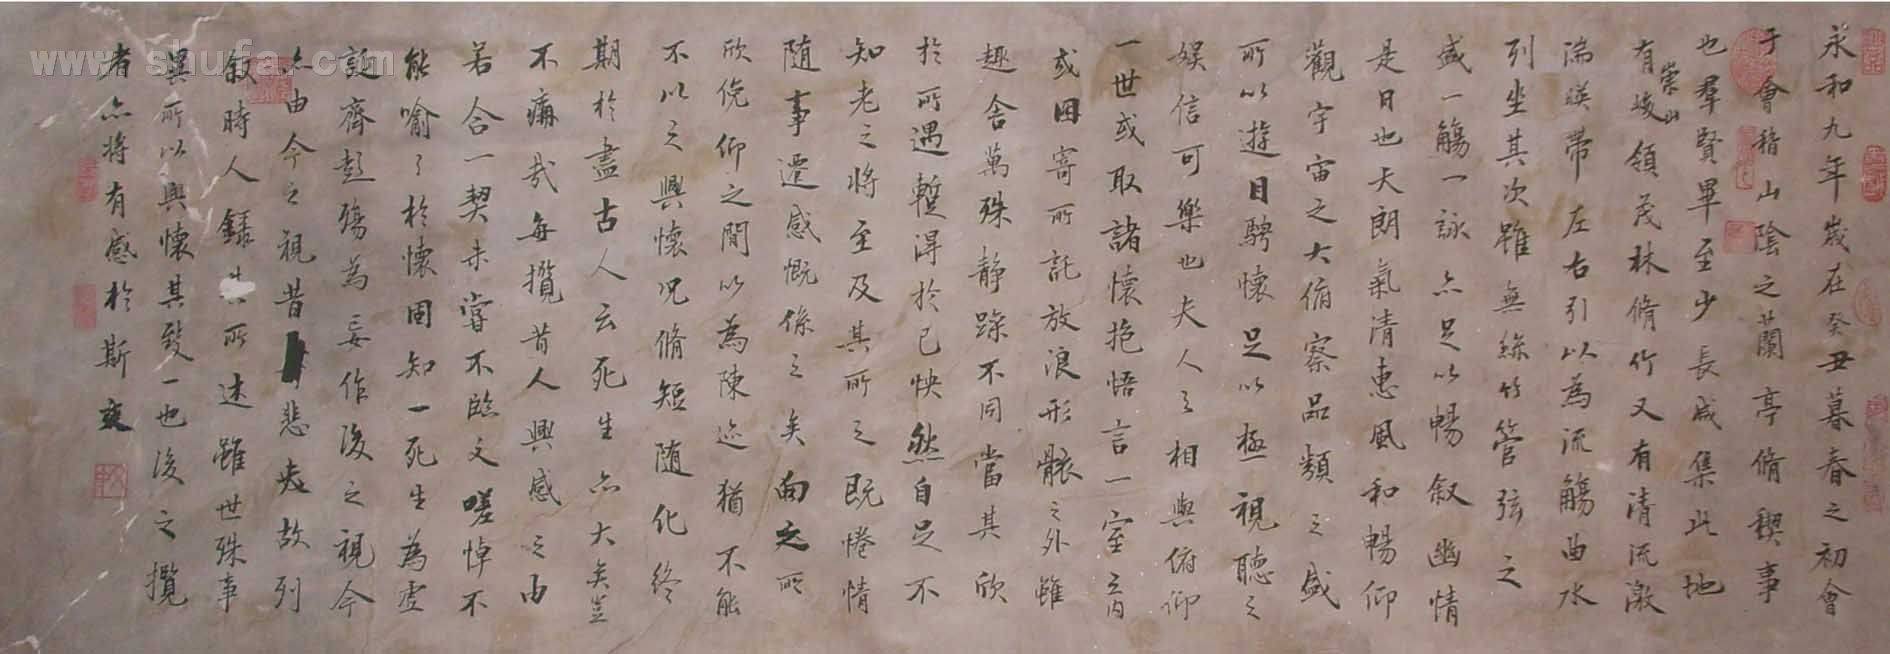 永和九年歲在癸丑暮春之初會
于會稽山陰之蘭亭脩稧事
也羣賢畢至少長咸集此地
有崇山峻領茂林脩竹又有清流激
湍暎帶左右引以為流觴曲水
列坐其次雖無絲竹管弦之
盛一觴一詠亦足以暢敘幽情
是日也天朗氣清惠風和暢仰
觀宇宙之大俯察品類之盛
所以遊目騁懷足以極視聽之
娛信可樂也夫人之相與俯仰
一世或取諸懷抱悟言一室之內
或因寄所託放浪形骸之外雖
趣舍萬殊静躁不同當其欣
於所遇蹔得於己怏然自足不
知老之將至及其所之既惓情
随事遷感慨係之矣向之所
欣俛仰之閒以為陳迹猶不能
不以之興懷况脩短随化終
期於盡古人云死生亦大矣豈
不痛哉每攬昔人興感之由
若合一契未甞不臨文嗟悼不
能喻之於懷固知一死生為虛
誕齊彭殤為妄作後之視今
亦由今之視昔悲夫故列
敘時人錄其所述雖世殊事
異所以興懷其致一也後之攬
者亦將有感於斯文
www.shufa.com